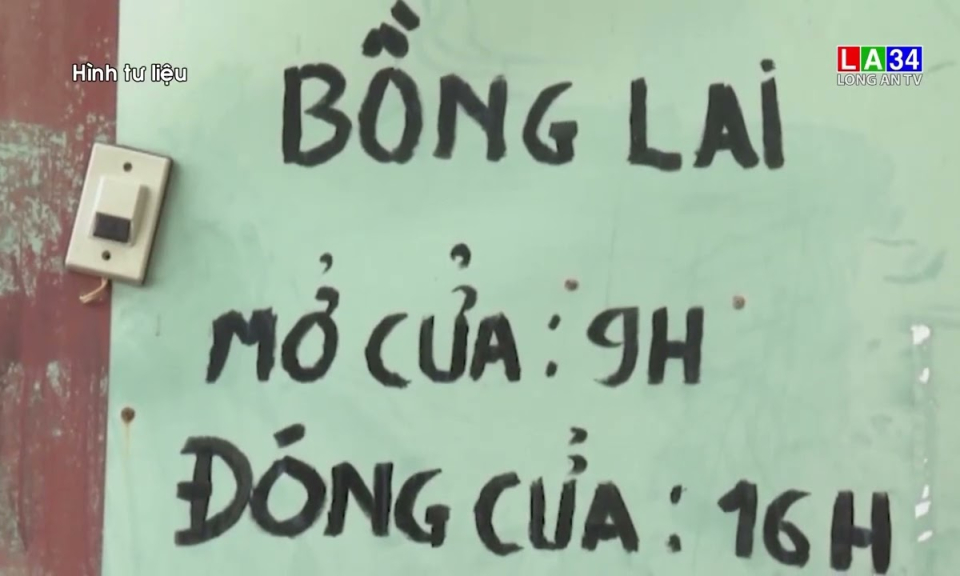 Hình tư liệu
LA34
LONG AN TV
BỒNG LAI
MỞ CỬA : 9H
ĐÓNG CỬA : 16H